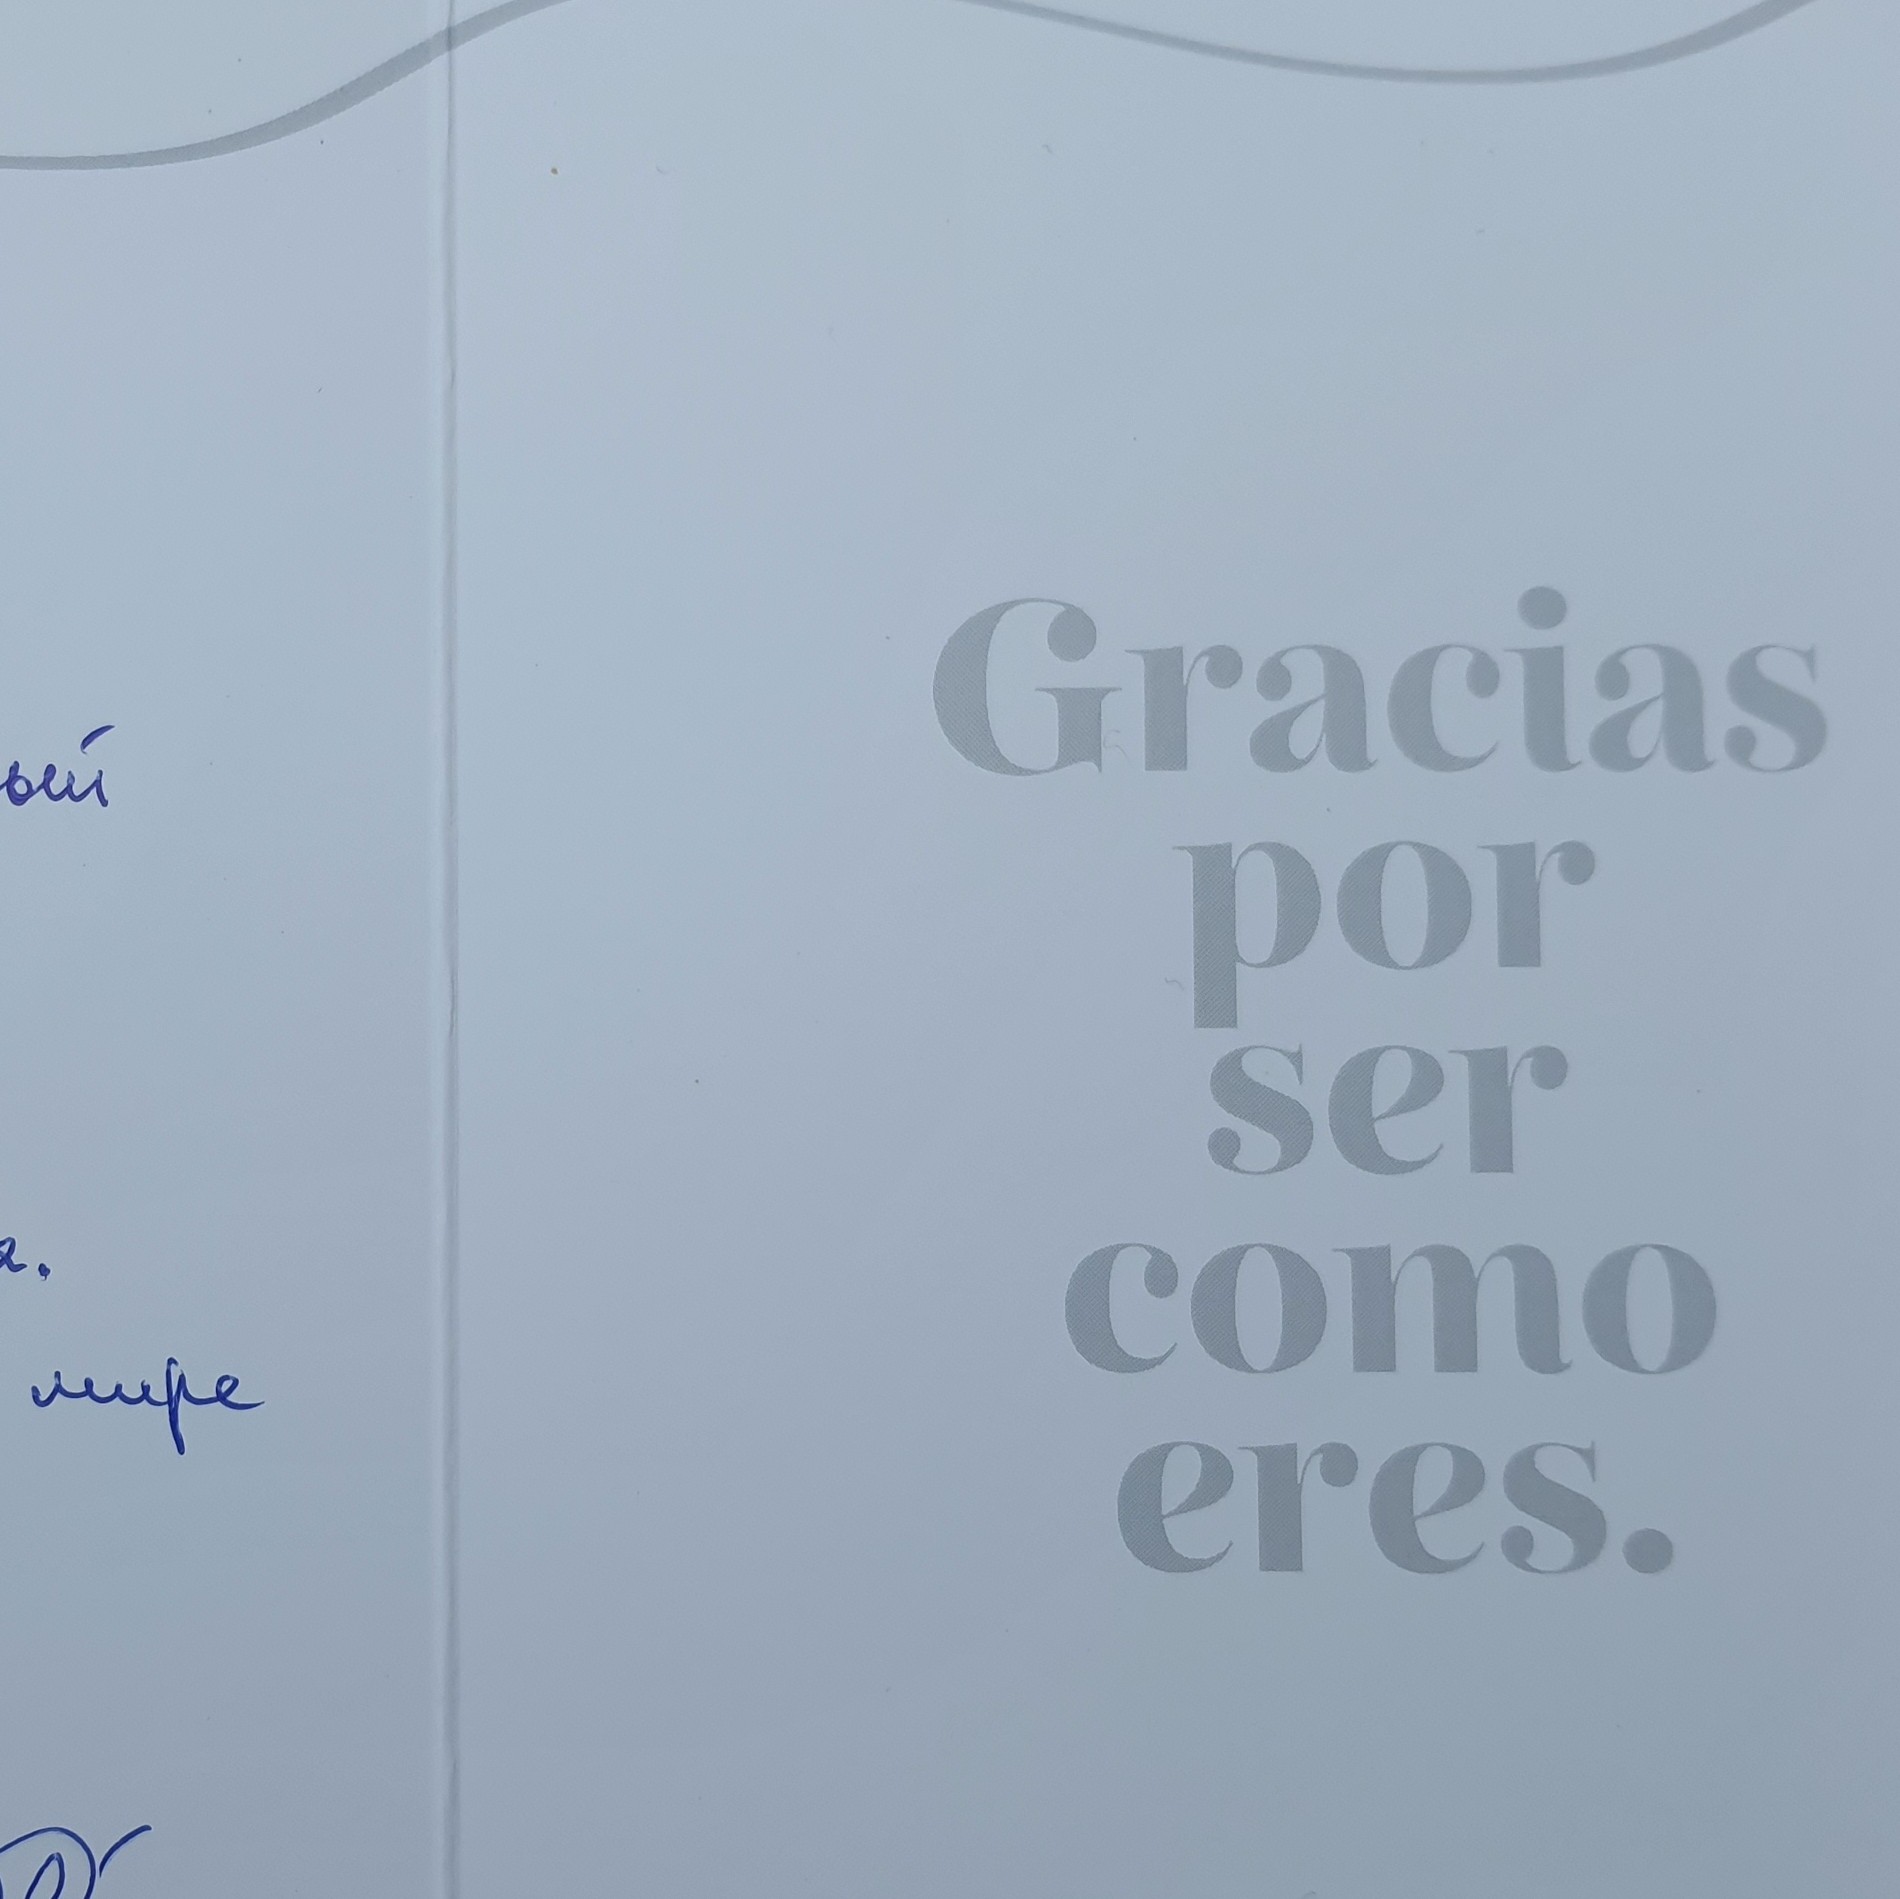 мире
Gracias
por
ser
como
eres.